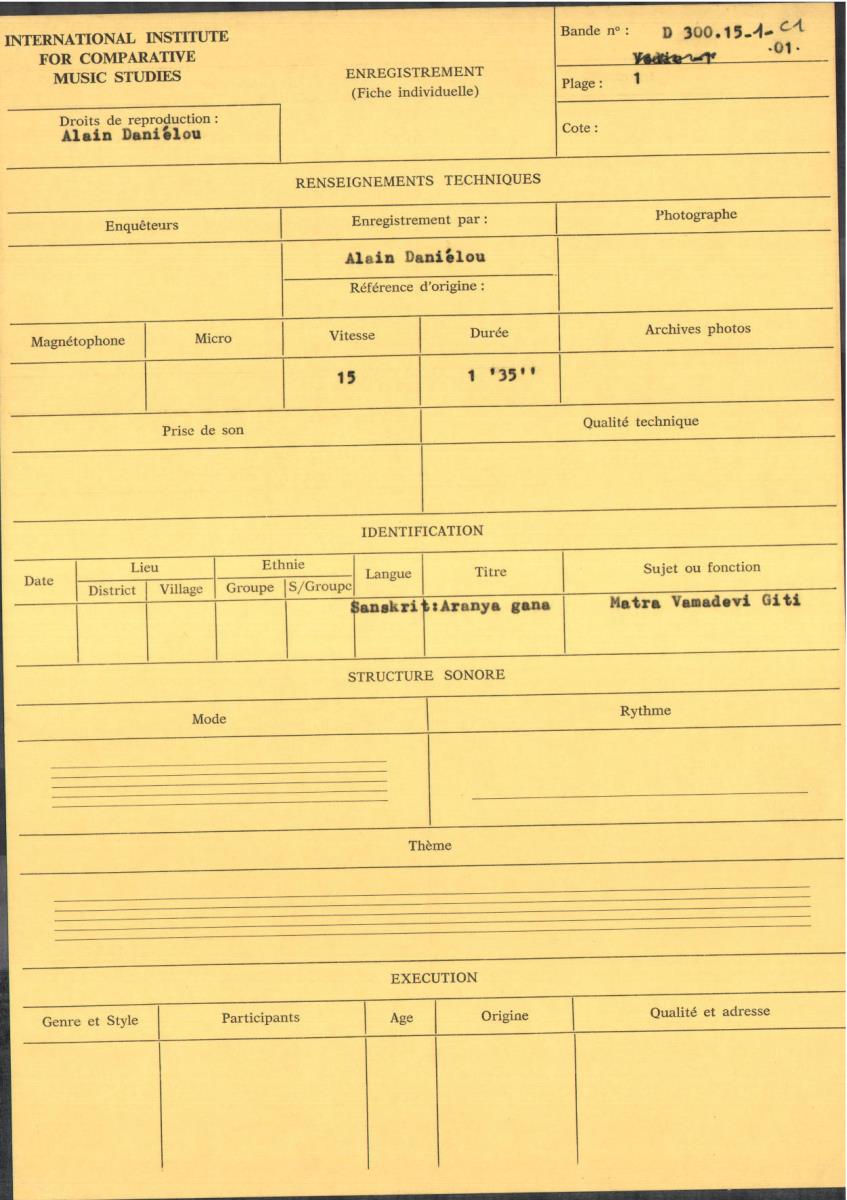 INTERNATIONAL INSTITUTE
FOR COMPARATIVE
MUSIC STUDIES
Droits de reproduction :
Alain Daniélou
ENREGISTREMENT
(Fiche individuelle)
Bande nº : D 300.15-1- C1
.01.
Plage : 1
Cote :
RENSEIGNEMENTS TECHNIQUES
Enquêteurs
Enregistrement par :
Photographe
Alain Daniélou
Référence d'origine :
Magnétophone Micro Vitesse Durée Archives photos
15 1 '35''
Prise de son Qualité technique
IDENTIFICATION
Date Lieu Ethnie Langue Titre Sujet ou fonction
District Village Groupe S/Groupe
Sanskrit:Aranya gana Matra Vamadevi Giti
STRUCTURE SONORE
Mode Rythme
Thème
EXECUTION
Genre et Style Participants Age Origine Qualité et adresse